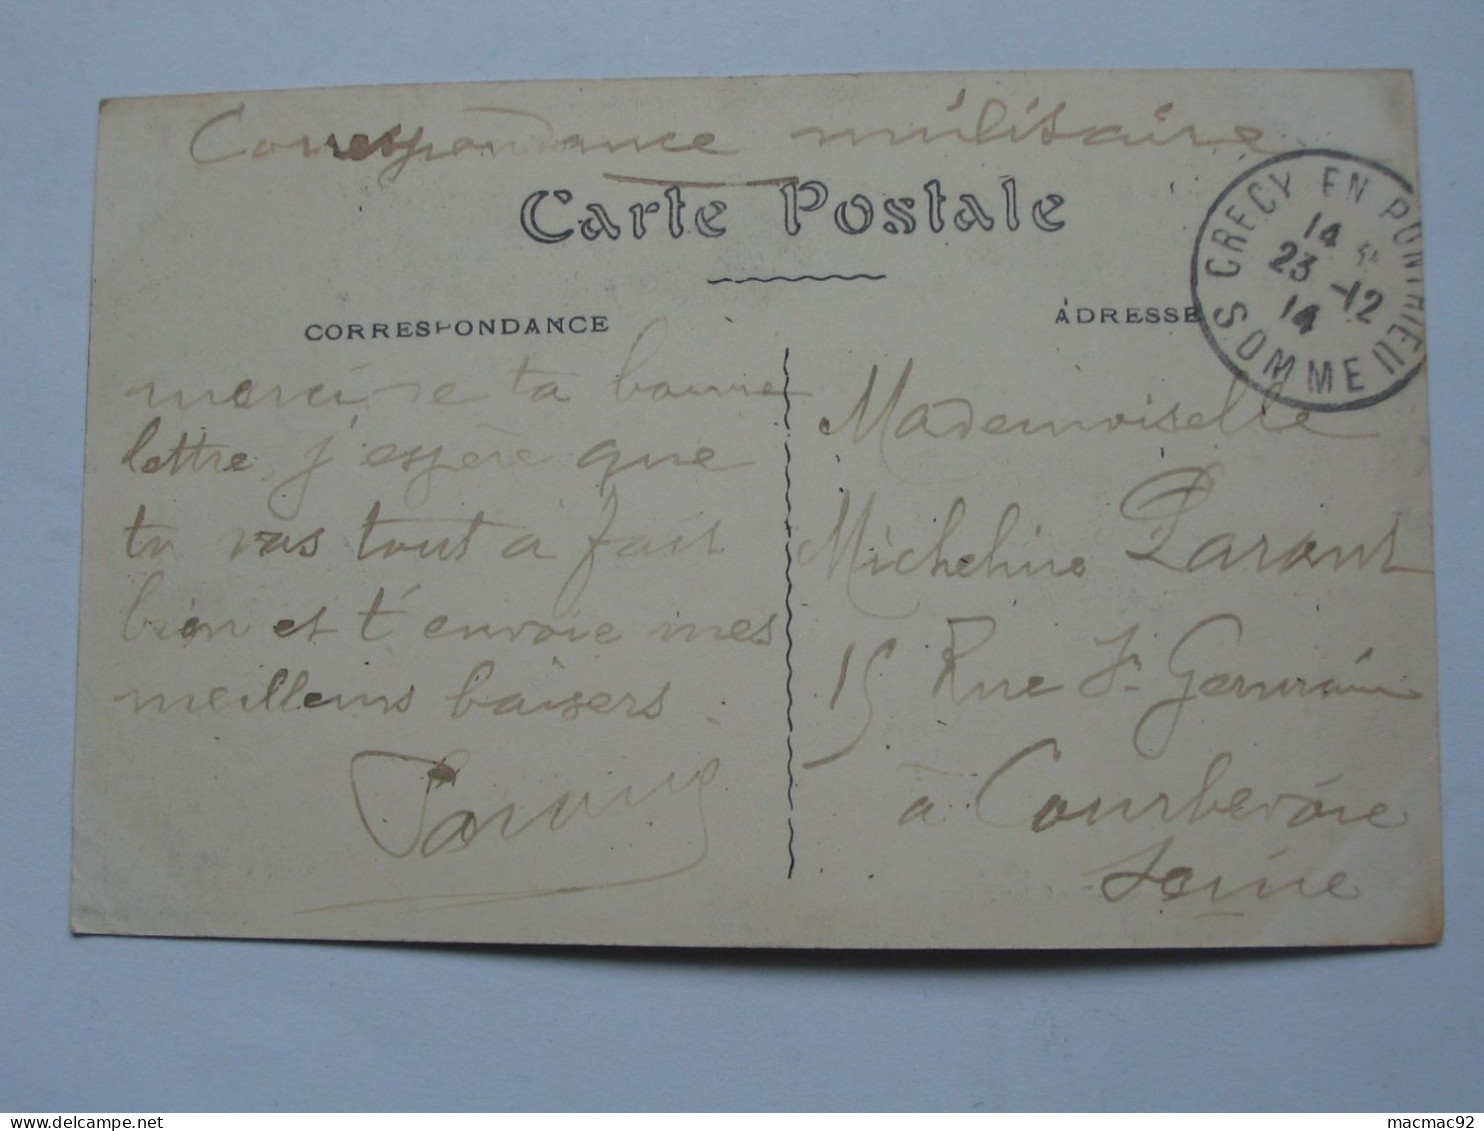 Correspondance militaire
Carte Postale
CORRESPONDANCE
ADRESSE
CRECY EN PONTHIEU
14
23 -12
14
SOMME
merci de ta bonne
lettre j'espère que
tu vas tout a fait
bien et t'envoie mes
meilleurs baisers.
Mademoiselle
Micheline Parant
15 Rue St Germain
à Courbevoie
Seine
macmac92